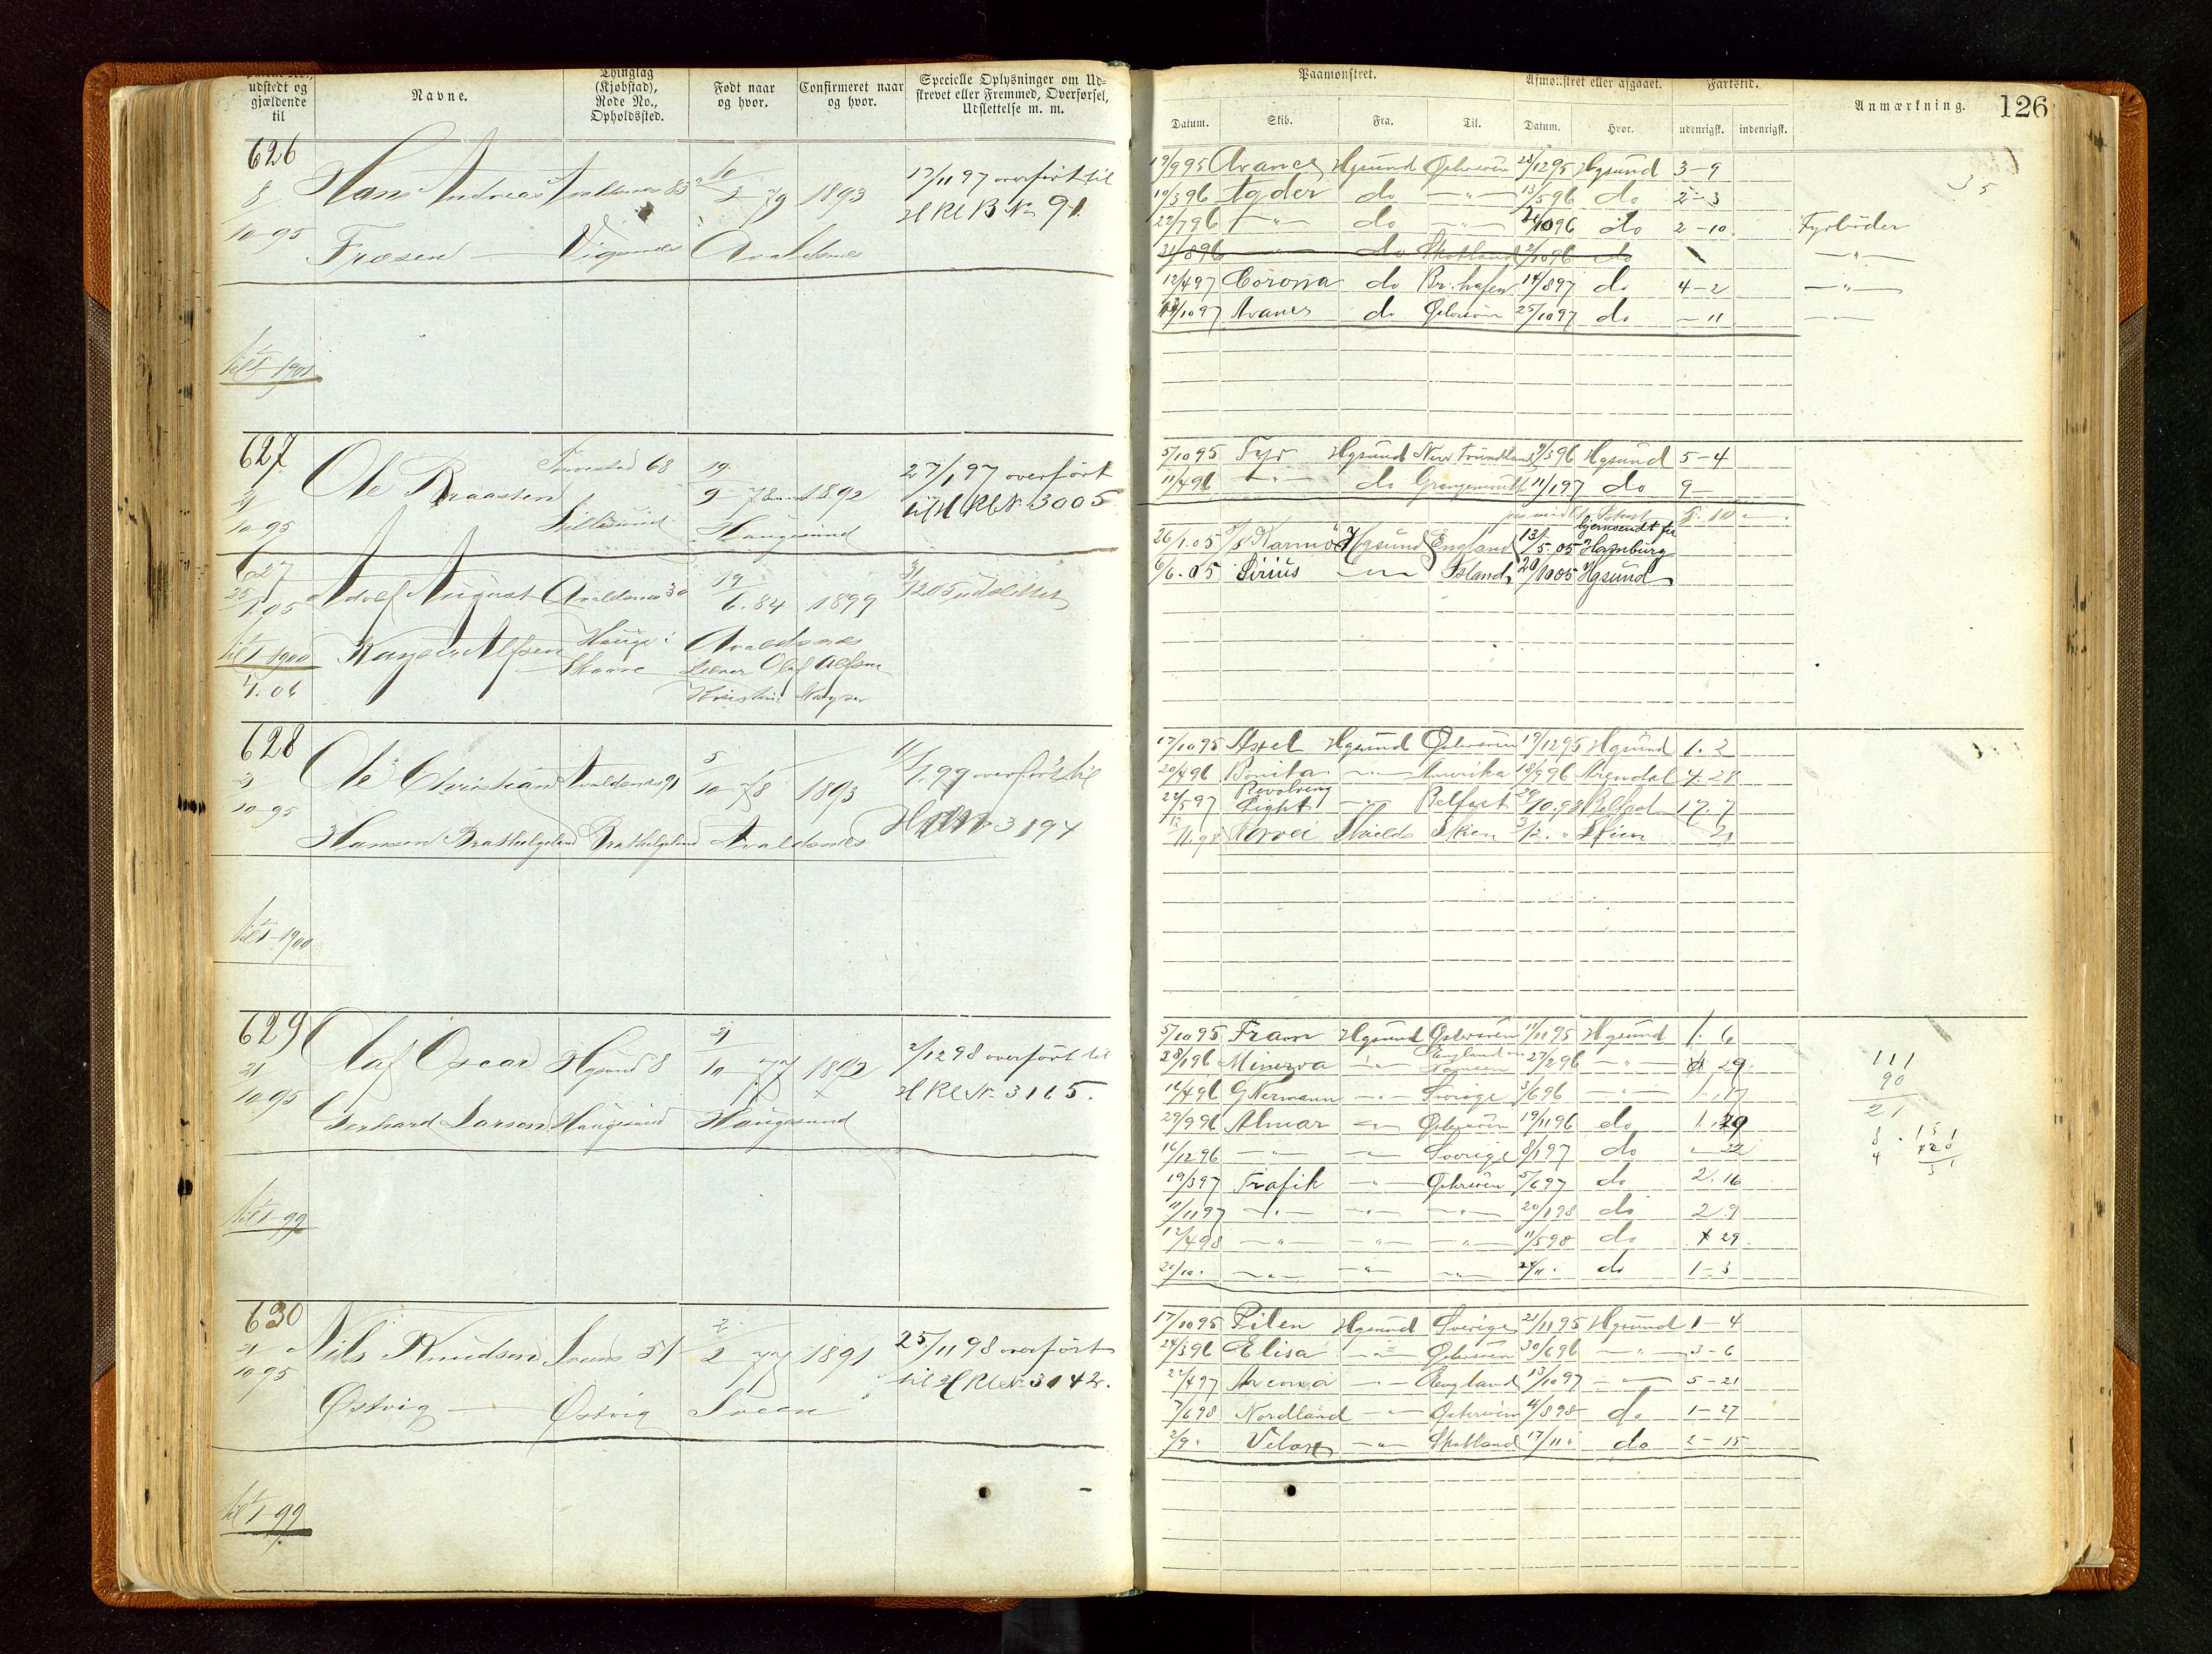 udstedt og
gjældende
til
Navne.
Thinglag
(Kjøbstad),
Rode No.,
Opholdssted.
Født naar
og hvor.
Confirmeret naar
og hvor.
Specielle Oplysninger om Ud-
skrevet eller Fremmed, Overførsel,
Udslettelse m. m.
626
8/10-95
Hans Andreas
83
16/2 79
1893
17/11 97 overført til
H Kl B No 91.
Vigsnes
Avaldsnes
til 1/1 1901
627
21/10-95
Ole Knaasten
Torvestad 68
19/9
1892
27/1 97 overført
til H Kl No 3005
Haugesund
627
25/1.05
Adolf August
Avaldsnes 30
19/6.84
1899
31/12 05 udslettet
til 1/1 1900
Hauge i
Skaare
Avaldsnes
Olaf Alfsen
4.06
628
21/10-95
Ole Christian
Avaldsnes 91
5/10 78
1893
11/1.99 overført til
3194
Hansen Brathelgeland
Brathelgeland
Avaldsnes
til 1/1 1900
629
21/10-95
Olaf Oscar
Hgsund 8
21/10 77
1892
2/12 98 overført til
H Kl No 3165.
Gerhard Larsen
Haugesund
Haugesund
til 1/1-99
630
21/10-95
Nils Knudsen
Sveen 51
2/2 77
1891
25/11 98 overført
til H Kl No 3142.
Østvig
Østvig
Sveen
til 1/1-99
Paamønstret.
Afmønstret eller afgaaet.
Fartstid.
Anmærkning.
126
Datum.
Skib.
Fra.
Til.
Datum.
Hvor.
udenrigsk.
indenrigsk.
19/9 95 Avance Hgsund Østersöen 28/12 95 Hgsund 3-9
35
10/3 96 Agder do -"- 13/5 96 do 2-3
22/7 96 -"- do -"- do 2-10 Fyrbøder
21/8 96 -"- do Skotland 2/10 96 do -"-
12/4 97 Corona do Br.hafen 14/8 97 do 4-2 -"-
Avance do Østersöen 25/10 97 do -11 -"-
5/10 95 Tyr Hgsund New Foundland 9/3 96 Hgsund 5-4
11/4 96 -"- do Grangemouth 11/1 97 do 9-
hjemsendt fra
26/1.05 S/S Karmö Hgsund England 13/5.05 Hamburg
6/6.05 Sirius -"- Island 20/10 05 Hgsund
17/10 95 Axel Hgsund Østersöen 19/12 95 Hgsund 1.2
20/4 96 Bonita -"- Amerika 18/9 96 Arendal 4.28
Revolving
22/5 97 Light -"- Belfast 29/10.98 Belfast 17.7
12/11.98 Norvei Shields Skien 3/12." Skien -21
5/10 95 Fram Hgsund Østersöen 11/11 95 Hgsund 1.6
28/1 96 Minerva -"- England 27/2 96 -"- 29.
16/4 96 G Kermann -"- Sverige 3/6 96 -"- 1.17
29/9 96 Almar -"- Østersöen 19/11 96 do 1.29
16/12 96 -"- -"- Sverige 8/1 97 do -22
19/3 97 Trafik -"- Østersöen 5/6 97 do 2.16
11/11 97 -"- -"- -"- 20/1 98 do 2.9
12/4 98 -"- -"- -"- 11/5 98 do 29
20/10." -"- -"- -"- 24/11." do 1-3
111
90
21
8
4
17/10 95 Pilen Hgsund Sverige 21/11 95 Hgsund 1-4
24/3 96 Elisa -"- Østersöen 30/6 96 -"- 3-6
22/4 97 Ancona -"- England 13/10 97 -"- 5-21
7/6 98 Nordland -"- Østersöen 4/8 98 do 1-27
2/9 " Velox -"- Skotland 17/11 " do 2-15